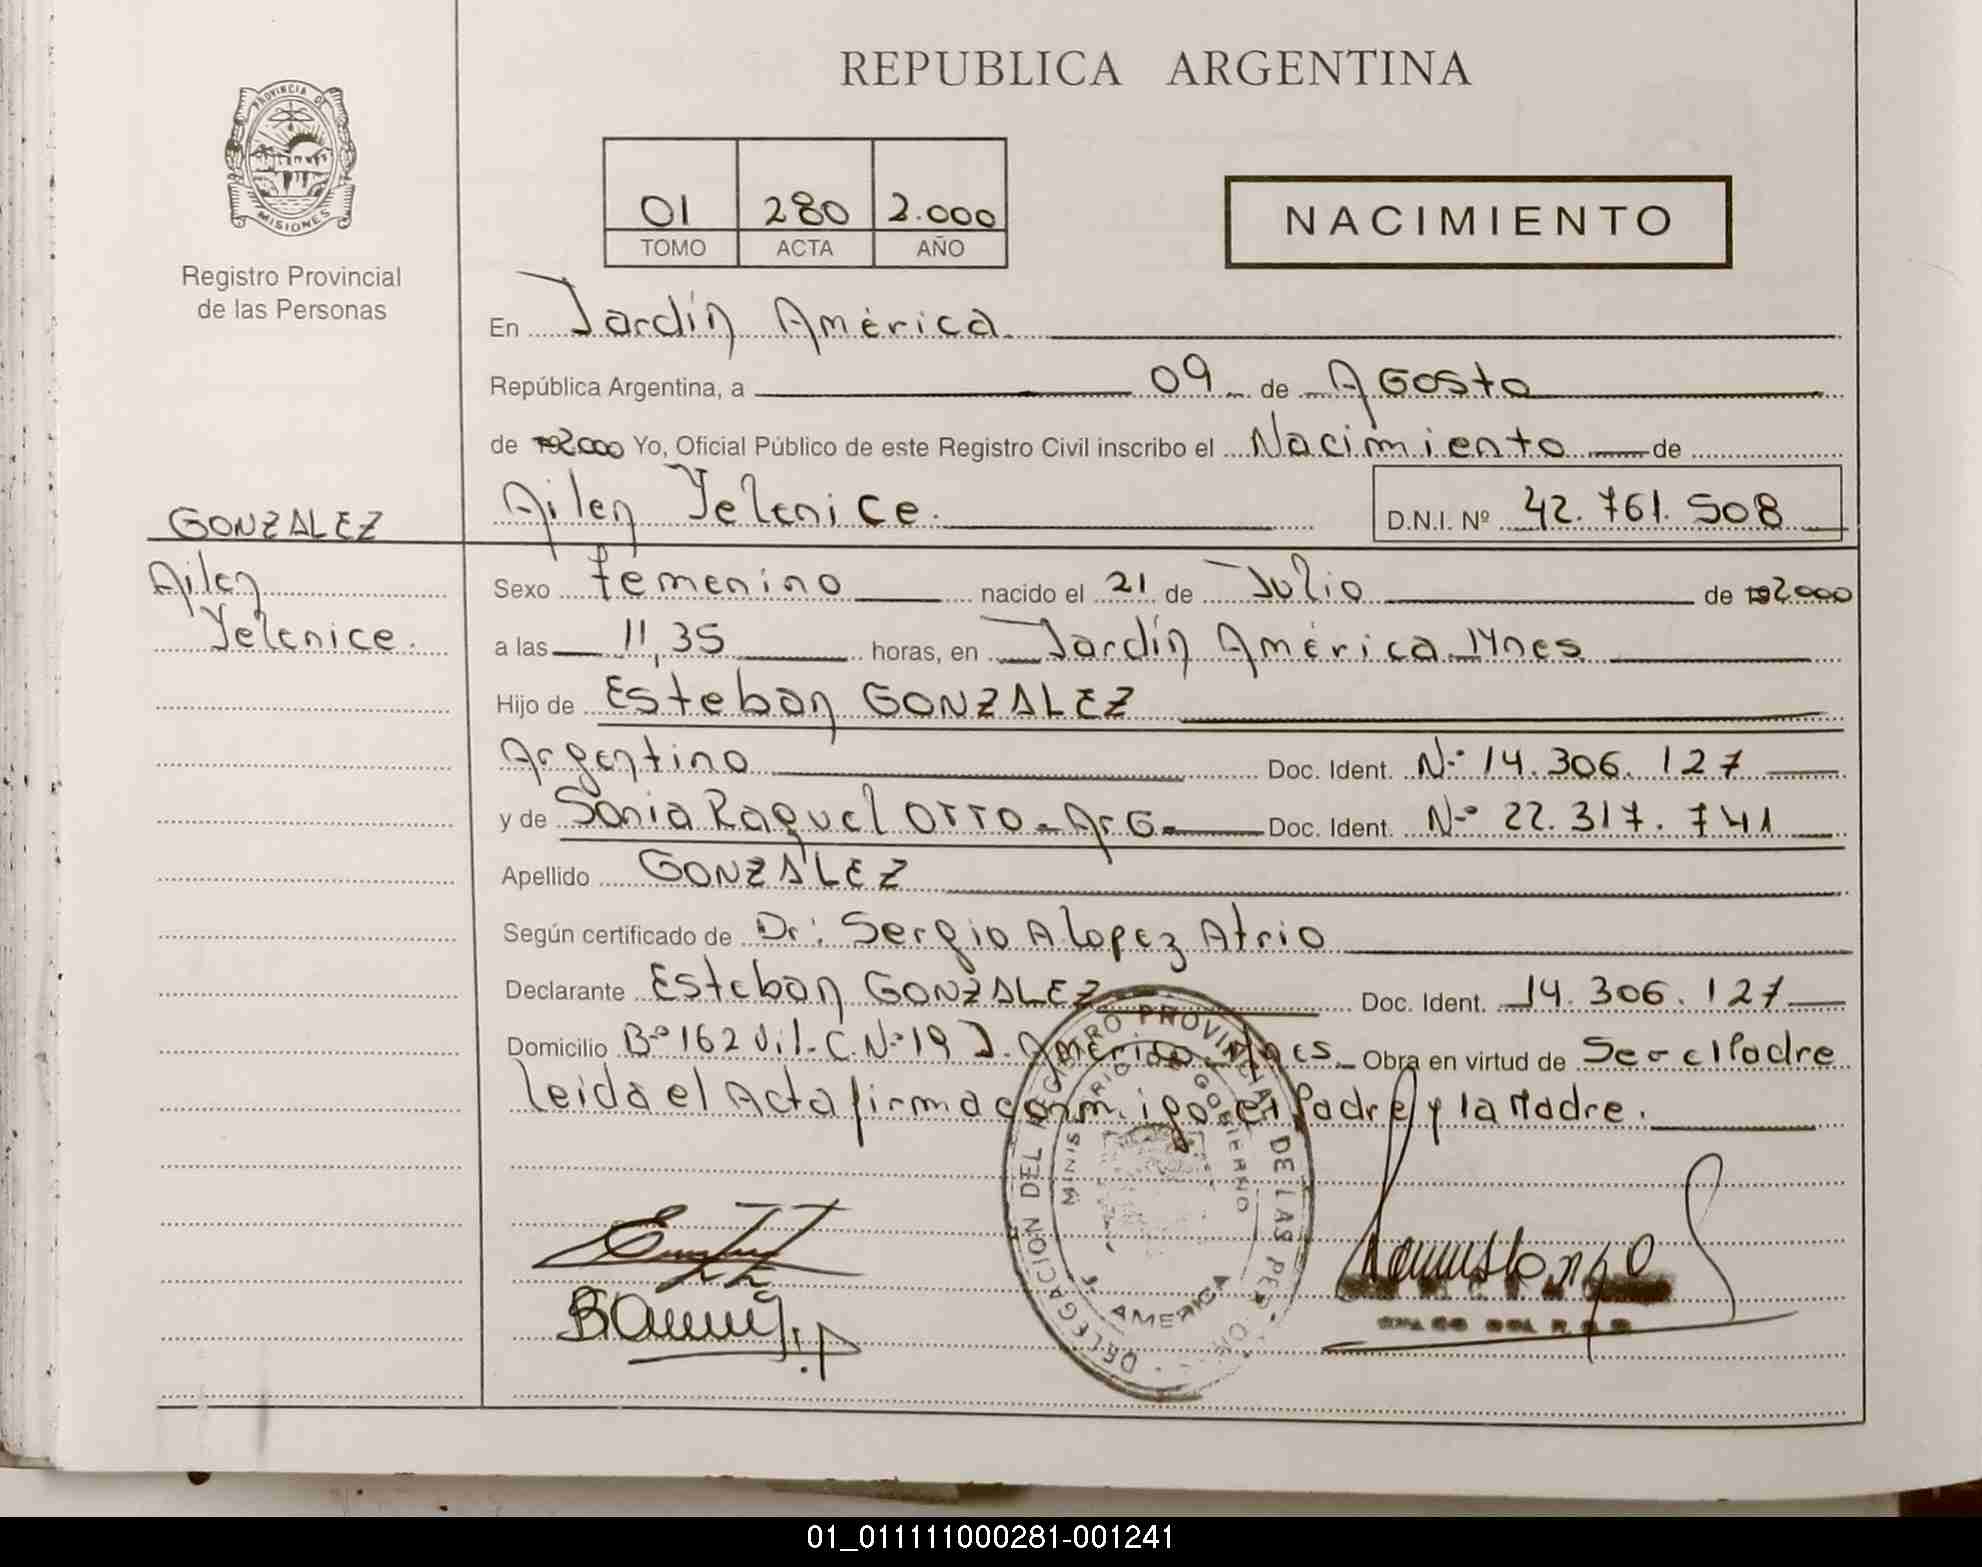 REPUBLICA ARGENTINA
PROVINCIA DE
MISIONES
Registro Provincial
de las Personas
01 280 2.000
TOMO ACTA AÑO
NACIMIENTO
En Jardín América
República Argentina, a 09 de Agosto
de 2.000 Yo, Oficial Público de este Registro Civil inscribo el Nacimiento de
Ailen Yelenice. D.N.I. Nº 42.761.508
GONZALEZ
Ailen
Yelenice.
Sexo femenino nacido el 21 de Julio de 2.000
a las 11,35 horas, en Jardín América Mnes
Hijo de Esteban GONZALEZ
Argentino Doc. Ident. Nº 14.306.127
y de Sonia Raquel OTTO - Arg- Doc. Ident. Nº 22.317.741
Apellido GONZALEZ
Según certificado de Dr: Sergio A Lopez Atrio
Declarante Esteban GONZALEZ Doc. Ident. 14.306.127
Domicilio Bº 162 Vi.- C.Nº 19 J. América Mnes. Obra en virtud de Ser el Padre
leida el Acta firma conmigo el Padre y la Madre.
DELEGACION DEL REGISTRO PROVINCIAL DE LAS
MINISTERIO DE GOBIERNO
J. AMERICA
01_011111000281-001241